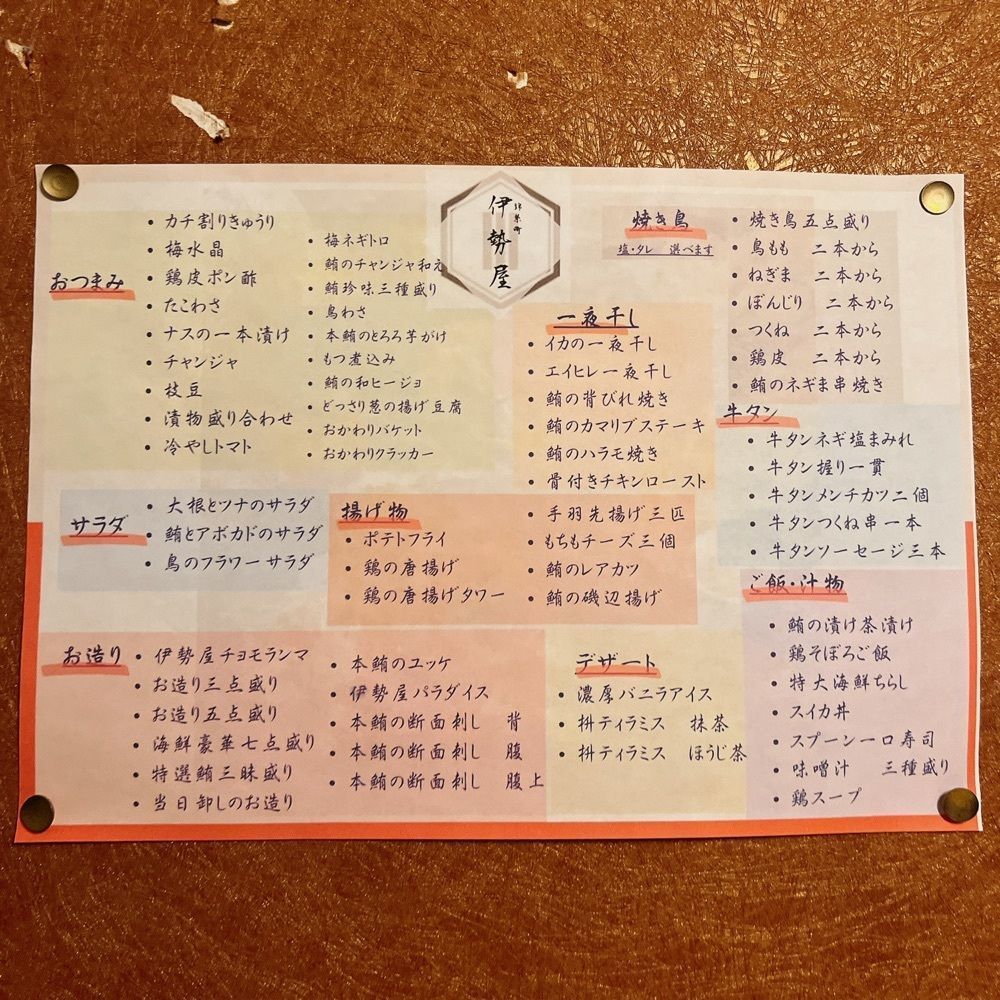 錦糸町
伊勢屋
おつまみ
カチ割りきゅうり
梅水晶
鶏皮ポン酢
たこわさ
ナスの一本漬け
チャンジャ
枝豆
漬物盛り合わせ
冷やしトマト
梅ネギトロ
鮪のチャンジャ和え
鮪珍味三種盛り
鳥わさ
本鮪のとろろ芋がけ
もつ煮込み
鮪の和ヒージョ
どっさり葱の揚げ豆腐
おかわりバケット
おかわりクラッカー
焼き鳥
塩・タレ 選べます
焼き鳥五点盛り
鳥もも 二本から
ねぎま 二本から
ぼんじり 二本から
つくね 二本から
鶏皮 二本から
鮪のネギま串焼き
一夜干し
イカの一夜干し
エイヒレ一夜干し
鮪の背びれ焼き
鮪のカマリブステーキ
鮪のハラモ焼き
骨付きチキンロースト
牛タン
牛タンネギ塩まみれ
牛タン握り一貫
牛タンメンチカツ二個
牛タンつくね串一本
牛タンソーセージ三本
サラダ
大根とツナのサラダ
鮪とアボカドのサラダ
鳥のフラワーサラダ
揚げ物
ポテトフライ
鶏の唐揚げ
鶏の唐揚げタワー
手羽先揚げ三匹
もちもチーズ三個
鮪のレアカツ
鮪の磯辺揚げ
ご飯・汁物
鮪の漬け茶漬け
鶏そぼろご飯
特大海鮮ちらし
スイカ丼
スプーン一口寿司
味噌汁 三種盛り
鶏スープ
お造り
伊勢屋チョモランマ
お造り三点盛り
お造り五点盛り
海鮮豪華七点盛り
特選鮪三昧盛り
当日卸しのお造り
本鮪のユッケ
伊勢屋パラダイス
本鮪の断面刺し 背
本鮪の断面刺し 腹
本鮪の断面刺し 腹上
デザート
濃厚バニラアイス
枡ティラミス 抹茶
枡ティラミス ほうじ茶